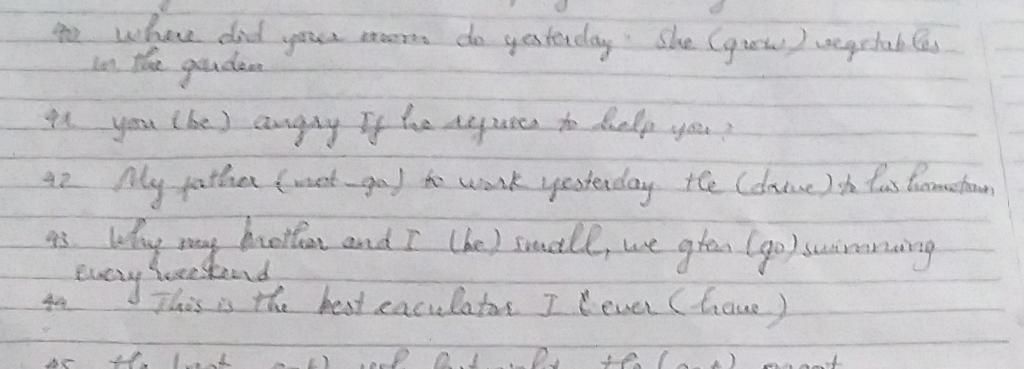 90 where did your mom do yesterday. She (grow) vegetables
in the garden
91 you (be) angry If he refuses to help you?
92 My father (not-go) to work yesterday He (drive) to his hometown
93 Why my brother and I (be) small, we often (go) swimming
every weekend
94 This is the best caculator I ever (have)
95 the